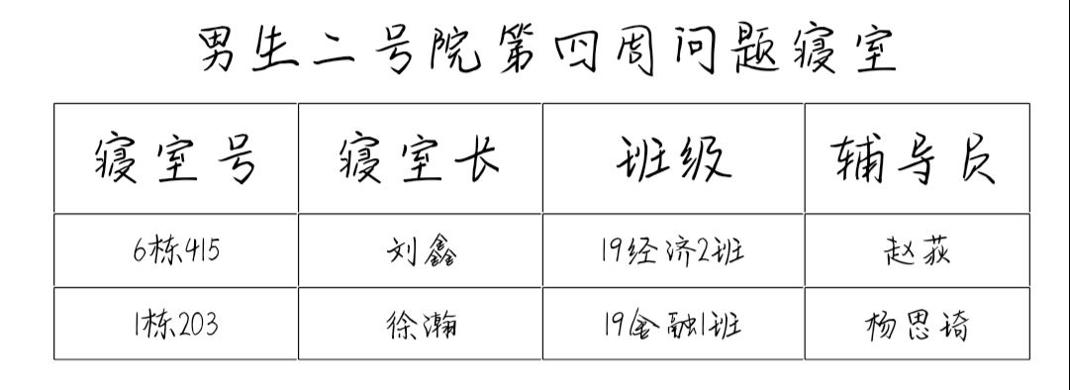 男生二号院第四周问题寝室
寝室号 寝室长 班级 辅导员
6栋415 刘鑫 19经济2班 赵荻
1栋203 徐瀚 19金融1班 杨思琦